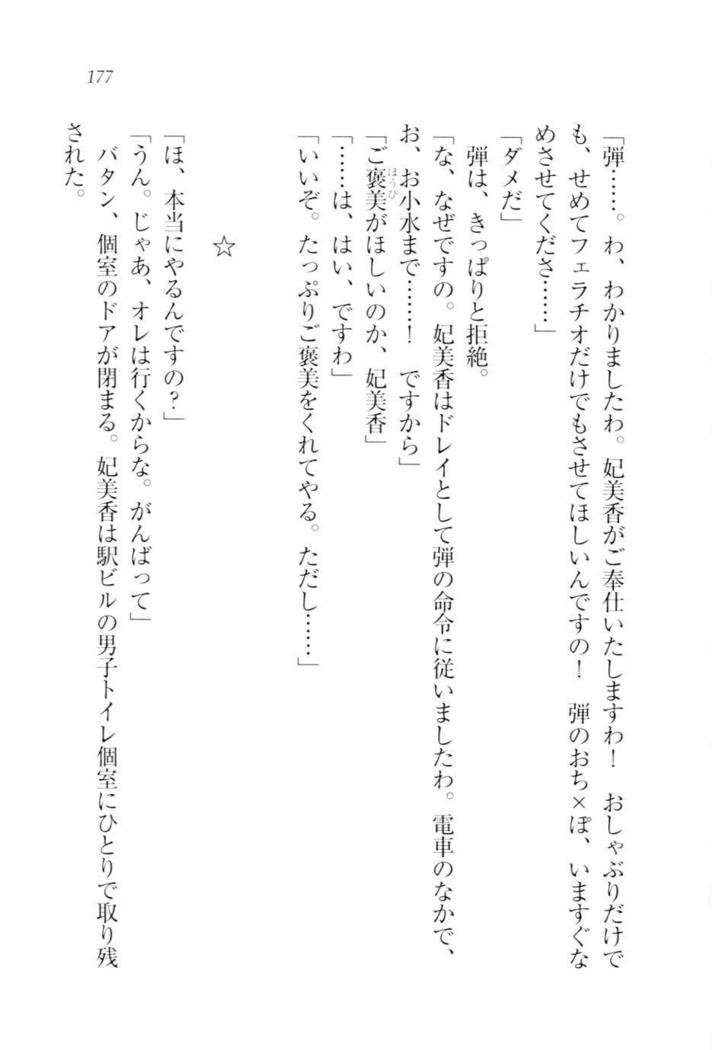 177
「弾……。わ、わかりましたわ。妃美香がご奉仕いたしますわ！　おしゃぶりだけで
も、せめてフェラチオだけでもさせてほしいんですの！　弾のおち×ぽ、いますぐな
めさせてくださ……」
「ダメだ」
　弾は、きっぱりと拒絶。
「な、なぜですの。妃美香はドレイとして弾の命令に従いましたわ。電車のなかで、
お、お小水まで……！　ですから」
「ご褒美がほしいのか、妃美香」
ほうび
「……は、はい、ですわ」
「いいぞ。たっぷりご褒美をくれてやる。ただし……」
☆
「ほ、本当にやるんですの？」
「うん。じゃあ、オレは行くからな。がんばって」
　バタン、個室のドアが閉まる。妃美香は駅ビルの男子トイレ個室にひとりで取り残
された。